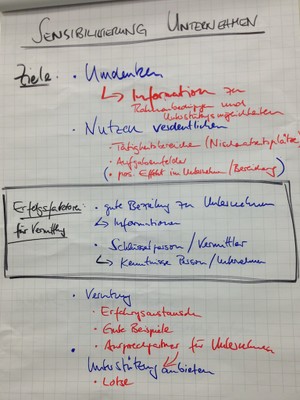 SENSIBILISIERUNG UNTERNEHMEN
Ziele: • Umdenken
↳ Information zu
Rahmenbedingungen und
Unterstützungsmöglichkeiten
• Nutzen verdeutlichen
• Tätigkeitsbereiche (Nischenarbeitsplätze)
• Aufgabenfelder
(• pos. Effekt im Unternehmen / Bereicherung)
Erfolgsfaktoren: • gute Beziehung zu Unternehmen
für Vermittlg ↳ Informationen
• Schlüsselperson / Vermittler
↳ Kenntnisse Person / Unternehmen
•
• Erfahrungsaustausch
• Gute Beispiele
• Ansprechpartner für Unternehmen
• Unterstützung anbieten
• Lotse